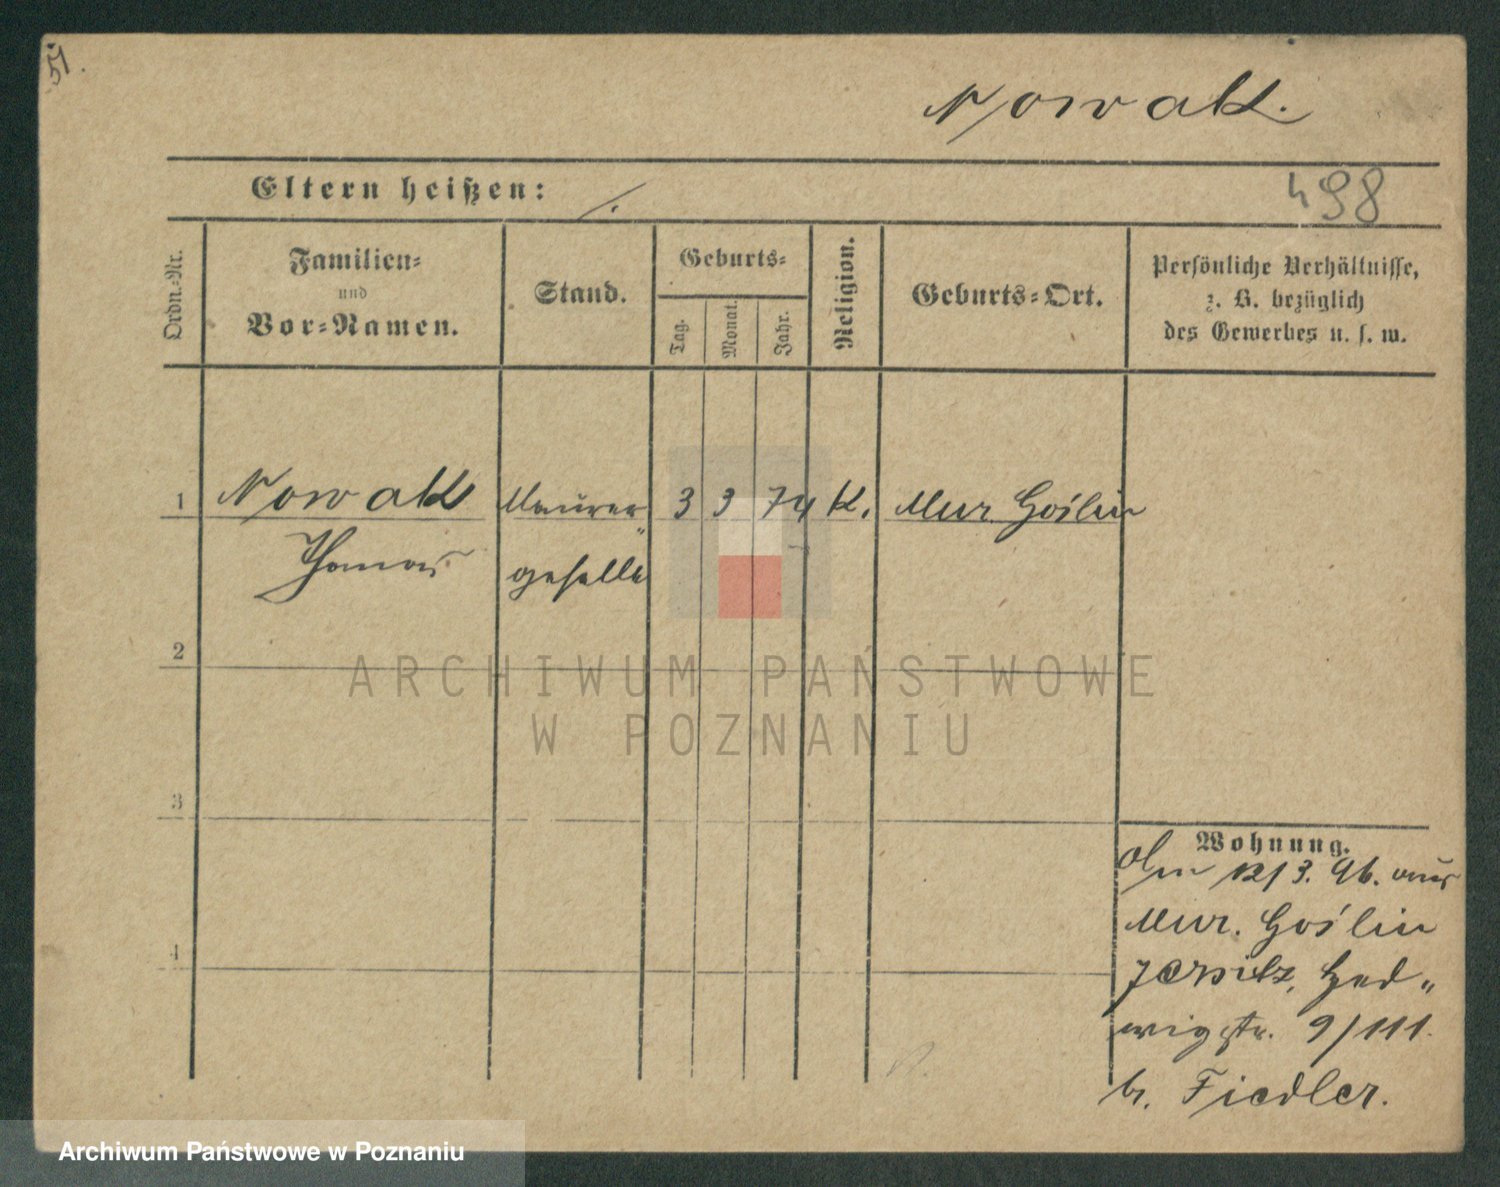 51.
Nowak.
Eltern heißen: /.
498
Ordn.-Nr.
Familien-
und
Vor-Namen.
Stand.
Geburts-
Tag.
Monat.
Jahr.
Religion.
Geburts-Ort.
Persönliche Verhältnisse,
z. B. bezüglich
des Gewerbes u. s. w.
1 Nowak Maurer 3 3 74 K. Mur. Goślin
Thomas geselle
2
ARCHIWUM PAŃSTWOWE
W POZNANIU
3
Wohnung.
12/3. 96. aus
Mur. Goślin
4
Jersitz, Hed„
wigstr. 9/111.
b. Fiedler.
Archiwum Państwowe w Poznaniu